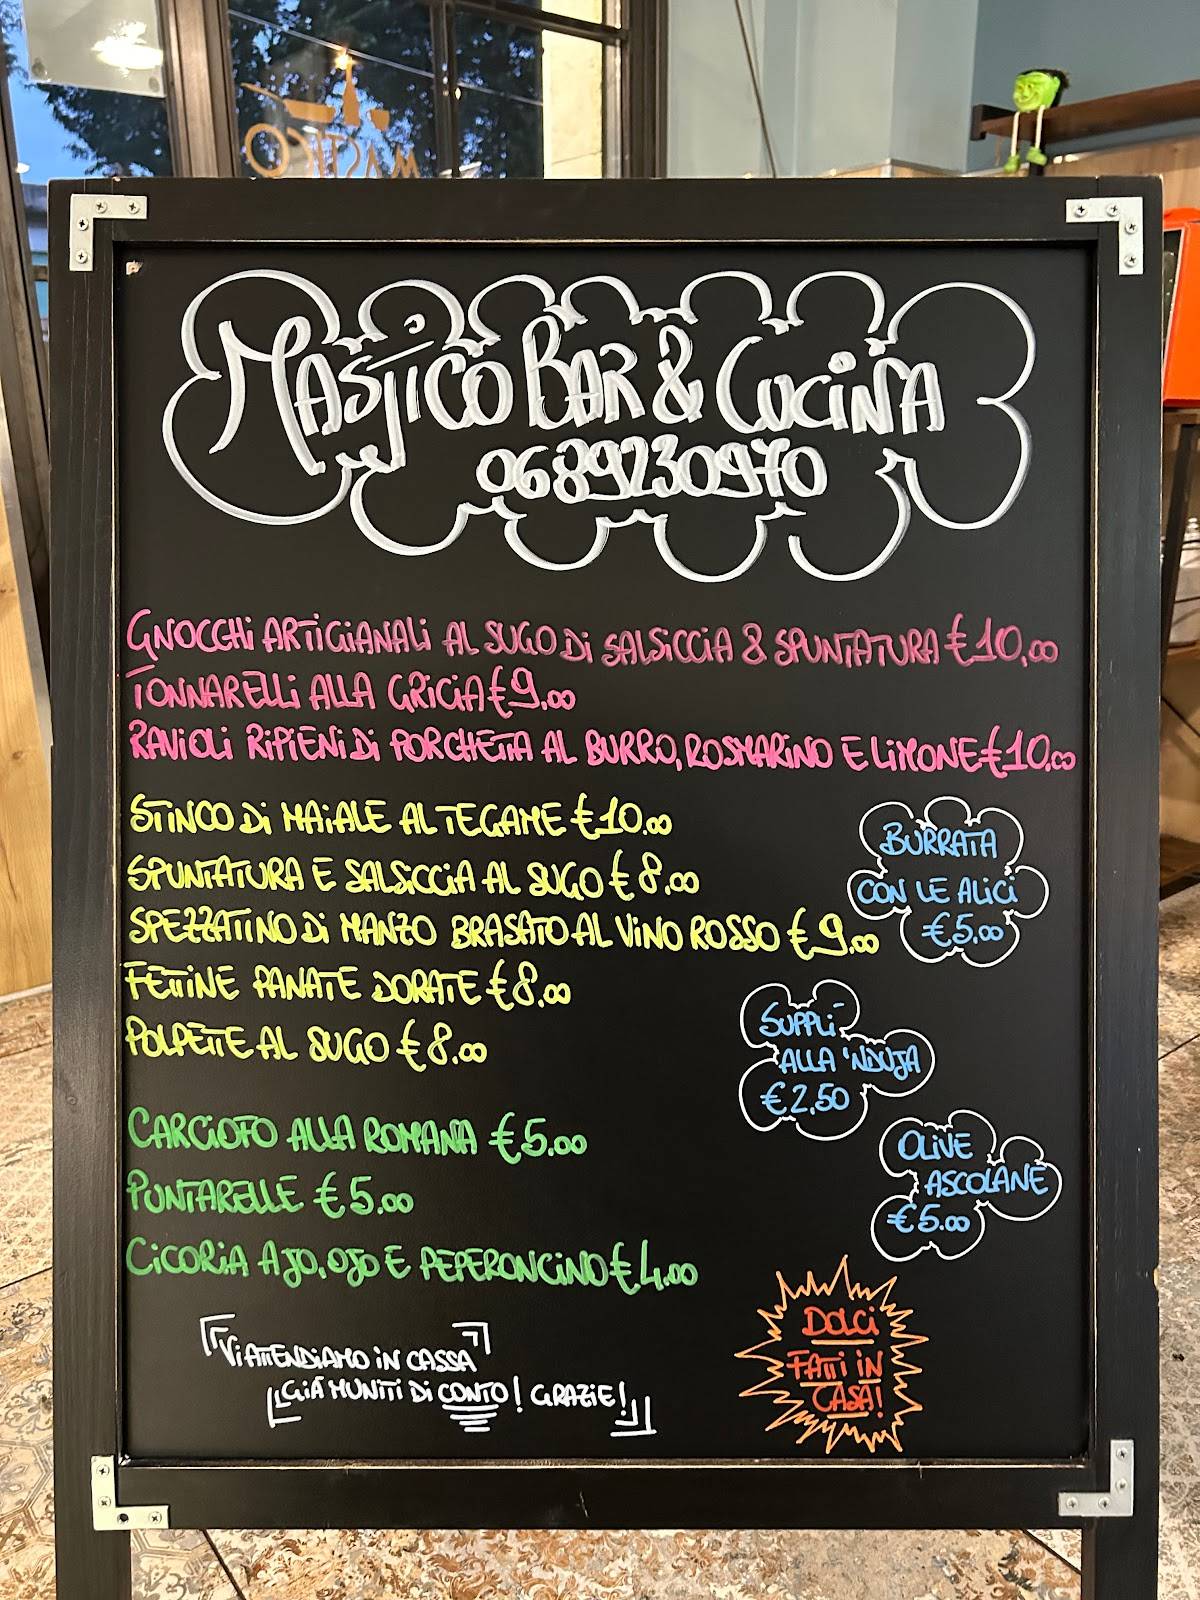 MASTICO
MASTICO BAR & CUCINA
0689230970
GNOCCHI ARTIGIANALI AL SUGO DI SALSICCIA & SPUNTATURA €10,00
TONNARELLI ALLA GRICIA €9,00
RAVIOLI RIPIENI DI PORCHETTA AL BURRO, ROSMARINO E LIMONE €10,00
STINCO DI MAIALE AL TEGAME €10,00
SPUNTATURA E SALSICCIA AL SUGO €8,00
SPEZZATINO DI MANZO BRASATO AL VINO ROSSO €9,00
FETTINE PANATE DORATE €8,00
POLPETTE AL SUGO €8,00
BURRATA
CON LE ALICI
€5,00
SUPPLÌ
ALLA 'NDUJA
€2,50
CARCIOFO ALLA ROMANA €5,00
PUNTARELLE €5,00
CICORIA AJO, OJO E PEPERONCINO €4,00
OLIVE
ASCOLANE
€5,00
VI ATTENDIAMO IN CASSA
GIÀ MUNITI DI CONTO! GRAZIE!
DOLCI
FATTI IN
CASA!